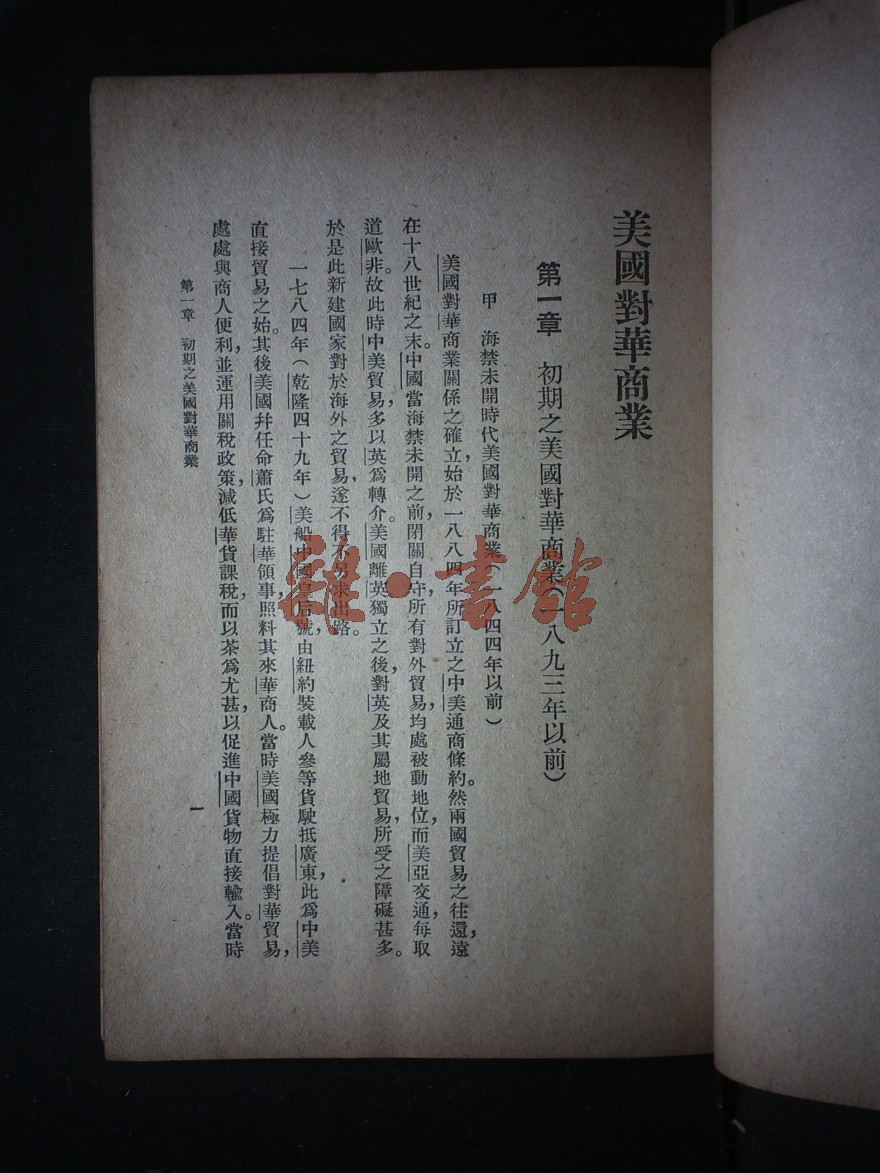 美國對華商業
第一章　初期之美國對華商業（一八九三年以前）
甲　海禁未開時代美國對華商業（一八四四年以前）
美國對華商業關係之確立，始於一八八四年所訂立之中美通商條約。然兩國貿易之往還，遠
在十八世紀之末。中國當海禁未開之前，閉關自守，所有對外貿易，均處被動地位，而美亞交通，每取
道歐非。故此時中美貿易，多以英爲轉介。美國離英獨立之後，對英及其屬地貿易，所受之障礙甚多。
於是此新建國家對於海外之貿易，遂不得不另求出路。
一七八四年（乾隆四十九年）美船中國皇后號，由紐約裝載人參等貨駛抵廣東，此爲中美
直接貿易之始。其後美國幷任命蕭氏爲駐華領事，照料其來華商人。當時美國極力提倡對華貿易，
處處與商人便利，並運用關稅政策，減低華貨課稅，而以茶爲尤甚，以促進中國貨物直接輸入。當時
第一章　初期之美國對華商業
一
雜·書館